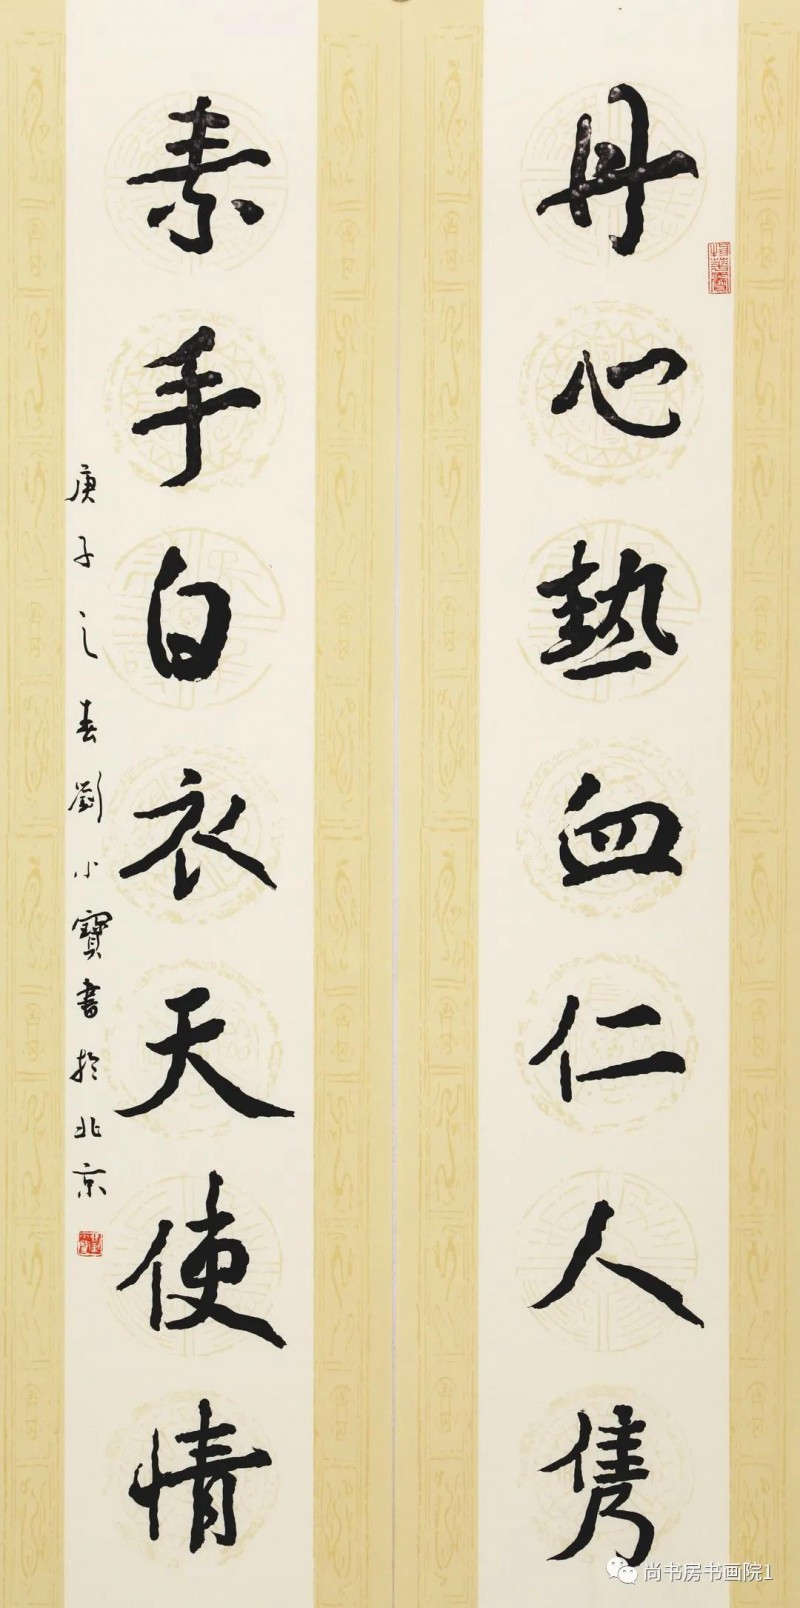 丹心熱血仁人隽
素手白衣天使情
庚子之春劉小寶書於北京
尚书房书画院1